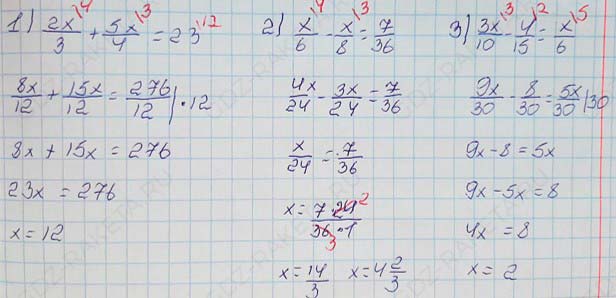 1) 2x/3 \4 + 5x/4 \3 = 23 \12
8x/12 + 15x/12 = 276/12 | · 12
8x + 15x = 276
23x = 276
x = 12
2) x/6 \4 - x/8 \3 = 7/36
4x/24 - 3x/24 = 7/36
x/24 = 7/36
x = 7·24 2/36·1 3
x = 14/3 x = 4 2/3
3) 3x/10 \3 - 4/15 \2 = x/6 \5
9x/30 - 8/30 = 5x/30 |30
9x - 8 = 5x
9x - 5x = 8
4x = 8
x = 2